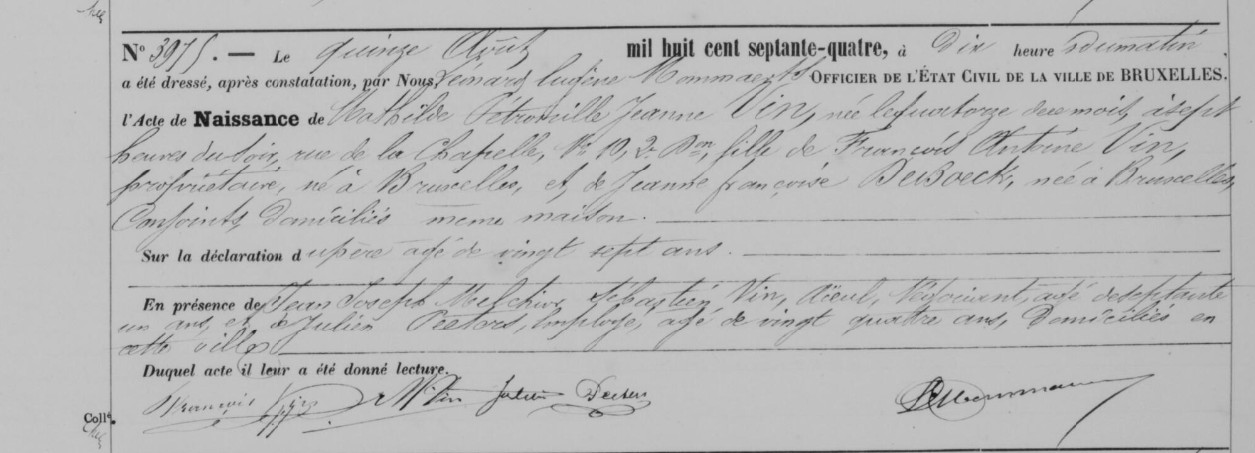 N° 3975. — Le quinze Août mil huit cent septante-quatre, à Dix heures du matin
a été dressé, après constatation, par Nous Léonard Eugène Mommaerts OFFICIER DE L'ÉTAT CIVIL DE LA VILLE DE BRUXELLES.
l'Acte de Naissance de Mathilde Pétronille Jeanne Vin, née le quatorze de ce mois, à sept
heures du soir, rue de la Chapelle, N° 10, 2e Don, fille de François Antoine Vin,
propriétaire, né à Bruxelles, et de Jeanne françoise DeBoeck, née à Bruxelles,
Conjoints, Domiciliés même maison.
Sur la déclaration du père agé de vingt sept ans.
En présence de Jean Joseph Melchior Sébastien Vin, Aïeul, Négociant, agé de septante
un ans, et de Julien Peeters, Employé, agé de vingt quatre ans, Domiciliés en
cette ville
Duquel acte il leur a été donné lecture.
François Vin Vin Julien Peeters
Collé.